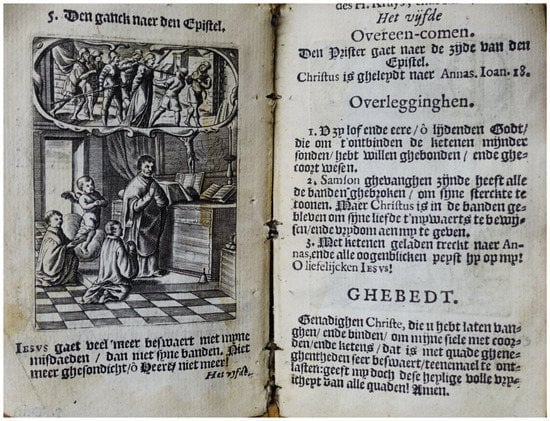 5. Den ganck naer den Epistel.
IESVS gaet veel meer beswaert met myne
misdaeden / dan met syne banden. Niet
meer ghesondicht/ô Heere/niet meer!
Het vijfde
des H. Kruys,
Het vijfde
Overeen-comen.
Den Prister gaet naer de zijde van den
Epistel.
Christus is gheleydt naer Annas. Ioan. 18.
Overlegginghen.
1. V zy lof ende eere / ô lijdenden Godt/
die om t'ontbinden de ketenen mijnder
sonden/hebt willen ghebonden / ende ghe-
coort wesen.
2. Samson ghevanghen zijnde heeft alle
de banden ghebroken / om syne sterckte te
toonen. Maer Christus is in de banden ge-
bleven om syne liefde t'mywaerts te bewij-
sen/ende vrydom aen my te geven.
3. Met ketenen geladen treckt naer An-
nas,ende alle oogenblicken peyst hy op my!
O liefelijcken IESV!
GHEBEDT.
Genadighen Christe, die u hebt laten van-
ghen/ ende binden/ om mijne siele met coor-
den/ende ketens/ dat is met quade ghene-
ghentheden seer beswaert/teenemael te ont-
lasten:geeft my doch dese heylige volle vry-
theyt van alle quaden! Amen.